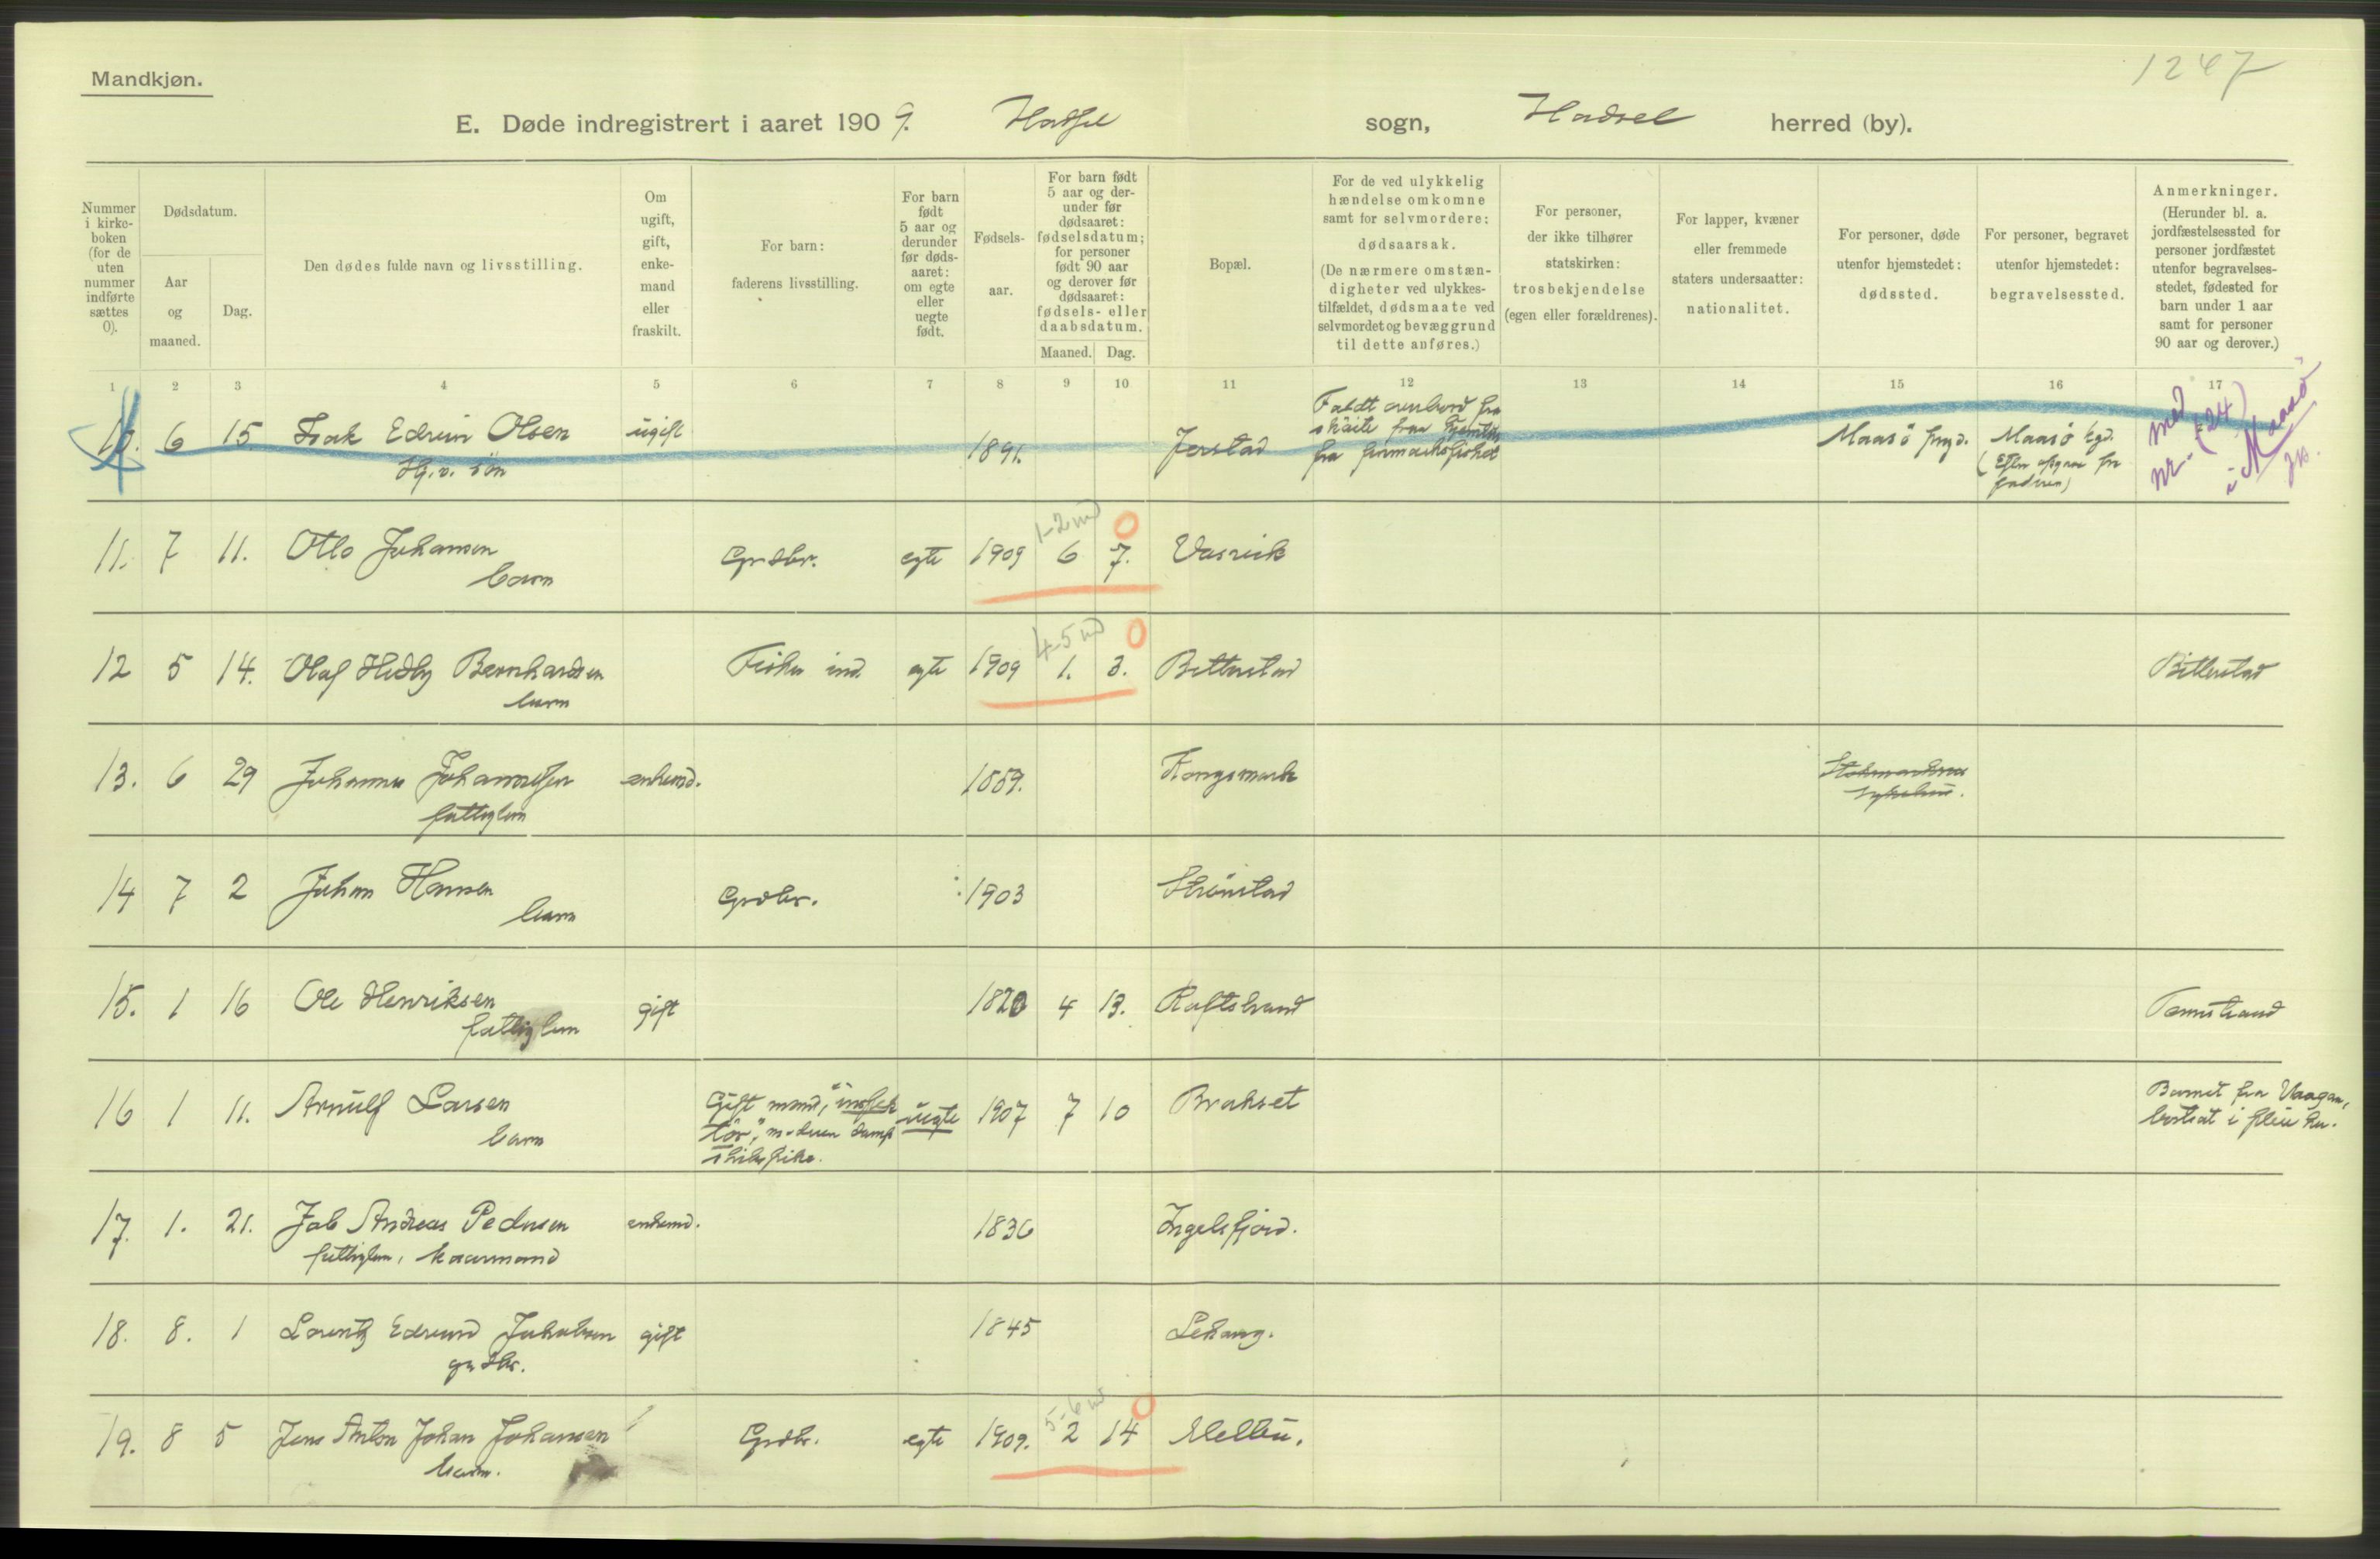 1247
Mandkjøn.
E. Døde indregistrert i aaret 1909. Hadsel sogn, Hadsel herred (by).
Nummer i kirke-boken (for de uten nummer indførte sættes 0).
Dødsdatum.
Aar og maaned.
Dag.
Den dødes fulde navn og livsstilling.
Om ugift, gift, enke-mand eller fraskilt.
For barn: faderens livsstilling.
For barn født 5 aar og derunder før døds-aaret: om egte eller uegte født.
Fødsels-aar.
For barn født 5 aar og der-under før dødsaaret: fødselsdatum; for personer født 90 aar og derover før dødsaaret: fødsels- eller daabsdatum.
Maaned. Dag.
Bopæl.
For de ved ulykkelig hændelse omkomne samt for selvmordere: dødsaarsak. (De nærmere omstæn-digheter ved ulykkes-tilfældet, dødsmaate ved selvmordet og bevæggrund til dette anføres.)
For personer, der ikke tilhører statskirken: trosbekjendelse (egen eller forældrenes).
For lapper, kvæner eller fremmede staters undersaatter: nationalitet.
For personer, døde utenfor hjemstedet: dødssted.
For personer, begravet utenfor hjemstedet: begravelsessted.
Anmerkninger. (Herunder bl. a. jordfæstelsessted for personer jordfæstet utenfor begravelses-stedet, fødested for barn under 1 aar samt for personer 90 aar og derover.)
1 2 3 4 5 6 7 8 9 10 11 12 13 14 15 16 17
10. 6 15. Isak Edvin Olsen ugift 1891. Jerstad Faldt overbord fra
skøite paa hjemtur
fra finmarksfisket
Maasö prgd. Maasö kgd.
(Efter opgave fra
faderen)
nr. (24)
i Maasö
Hj. v. sön
11. 7 11. Otto Johansen Grdbr. egte 1909 6 7. Vasvik
barn
1-2 md 0
12 5 14. Olaf Hedly Bernhardsen Fisker ind. egte 1909 1. 3. Bitterstad Bitterstad
barn
4-5 md 0
13. 6 29 Johannes Johannessen enkemd. 1859. Kongsmark Stokmarknes
sykehus.
fattiglem
14 7 2 Johan Hansen Grdbr. 1903 Strönstad
barn
15. 1 16 Ole Henriksen gift 1820 4 13. Raftstrand Tennstrand
fattiglem
16 1 11. Arnulf Larsen Gift mand, "inspek
tör," moderen damp
skibspike.
uegte 1907 7 10 Brokset Barnet fra Vaagan,
bortsat i pleie her.
barn
17. 1. 21. Job Andreas Pedersen enkemd. 1836 Ingelsfjord.
fattiglem, kaarmand
18. 8. 1 Lorentz Edvind Jakobsen gift 1845 Lekang.
grdbr.
19. 8 5 Jens Anton Johan Johansen Grdbr. egte 1909. 2 14 Melbu.
barn.
5-6 md 0